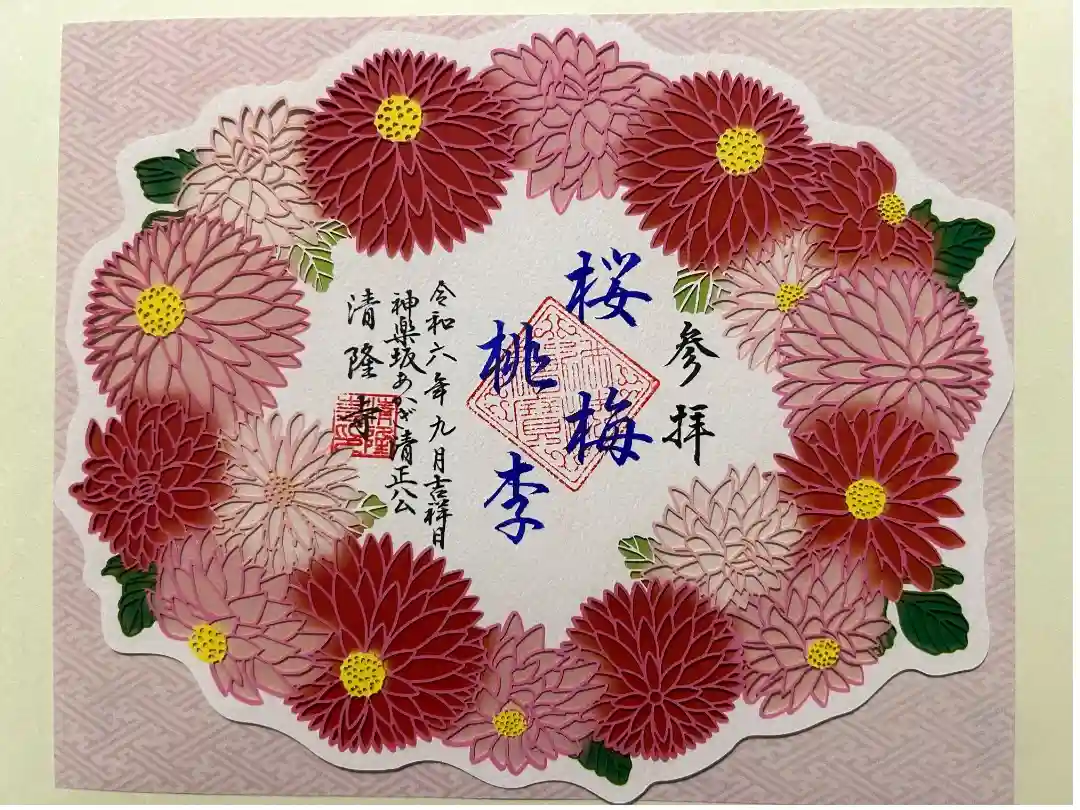 参拝
桜梅
桃李
令和六年九月吉祥日
神楽坂あかぎ清正公
清隆寺